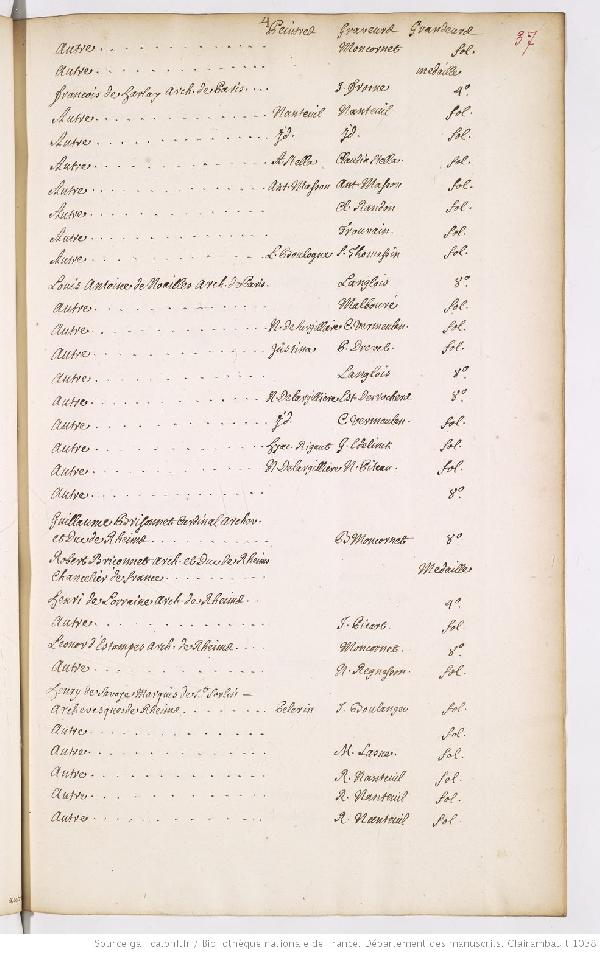 4
Peintres Graveurs Grandeurs 37
Autre Moncornet fol.
Autre medaille
francois de Harlay Arch. de Paris J. Frosne 4º.
Autre Nanteuil Nanteuil fol.
Autre Jd. Jd. fol.
Autre A. Stella Claudia Stella fol.
Autre Ant. Masson Ant. Masson fol.
Autre Cl. Randon fol.
Autre Trouvain fol.
Autre L. Boulogne S. Thomassin fol.
Louis Antoine de Noailles Arch. de Paris. Langlois 8º
Autre Malbouré fol.
Autre N. de Largilliere C. Vermeulen. fol.
Autre Justina P. Drevet. fol.
Autre Langlois 8º
Autre N. Delargilliere Est. Desrochers 8º
Autre Jd C. Vermeulen. fol.
Autre Hyac. Rigaut G. Edelinck fol.
Autre N. Delargilliere N. Piteau. fol.
Autre 8º
Guillaume Brissonet Cardinal Archev.
et Duc de Rheims B Moncornet 8º
Robert Briconnet Arch. et Duc de Rheims
Chancelier de france Medaille
Henri de Lorraine Arch. de Rheims 4º
Autre J. Picart. fol
Leonor d'Estampes Arch. de Rheims Moncornet. 8º
Autre N. Regnesson. fol.
Henry de Savoye Marquis de St. Sorlin
Archevesque de Rheims Pelerin J. Boulanger fol.
Autre fol.
Autre M. Lasne fol.
Autre R. Nanteuil fol.
Autre R. Nanteuil fol.
Autre R. Nanteuil fol.
Source gallica.bnf.fr / Bibliothèque nationale de France. Département des manuscrits. Clairambault 1038